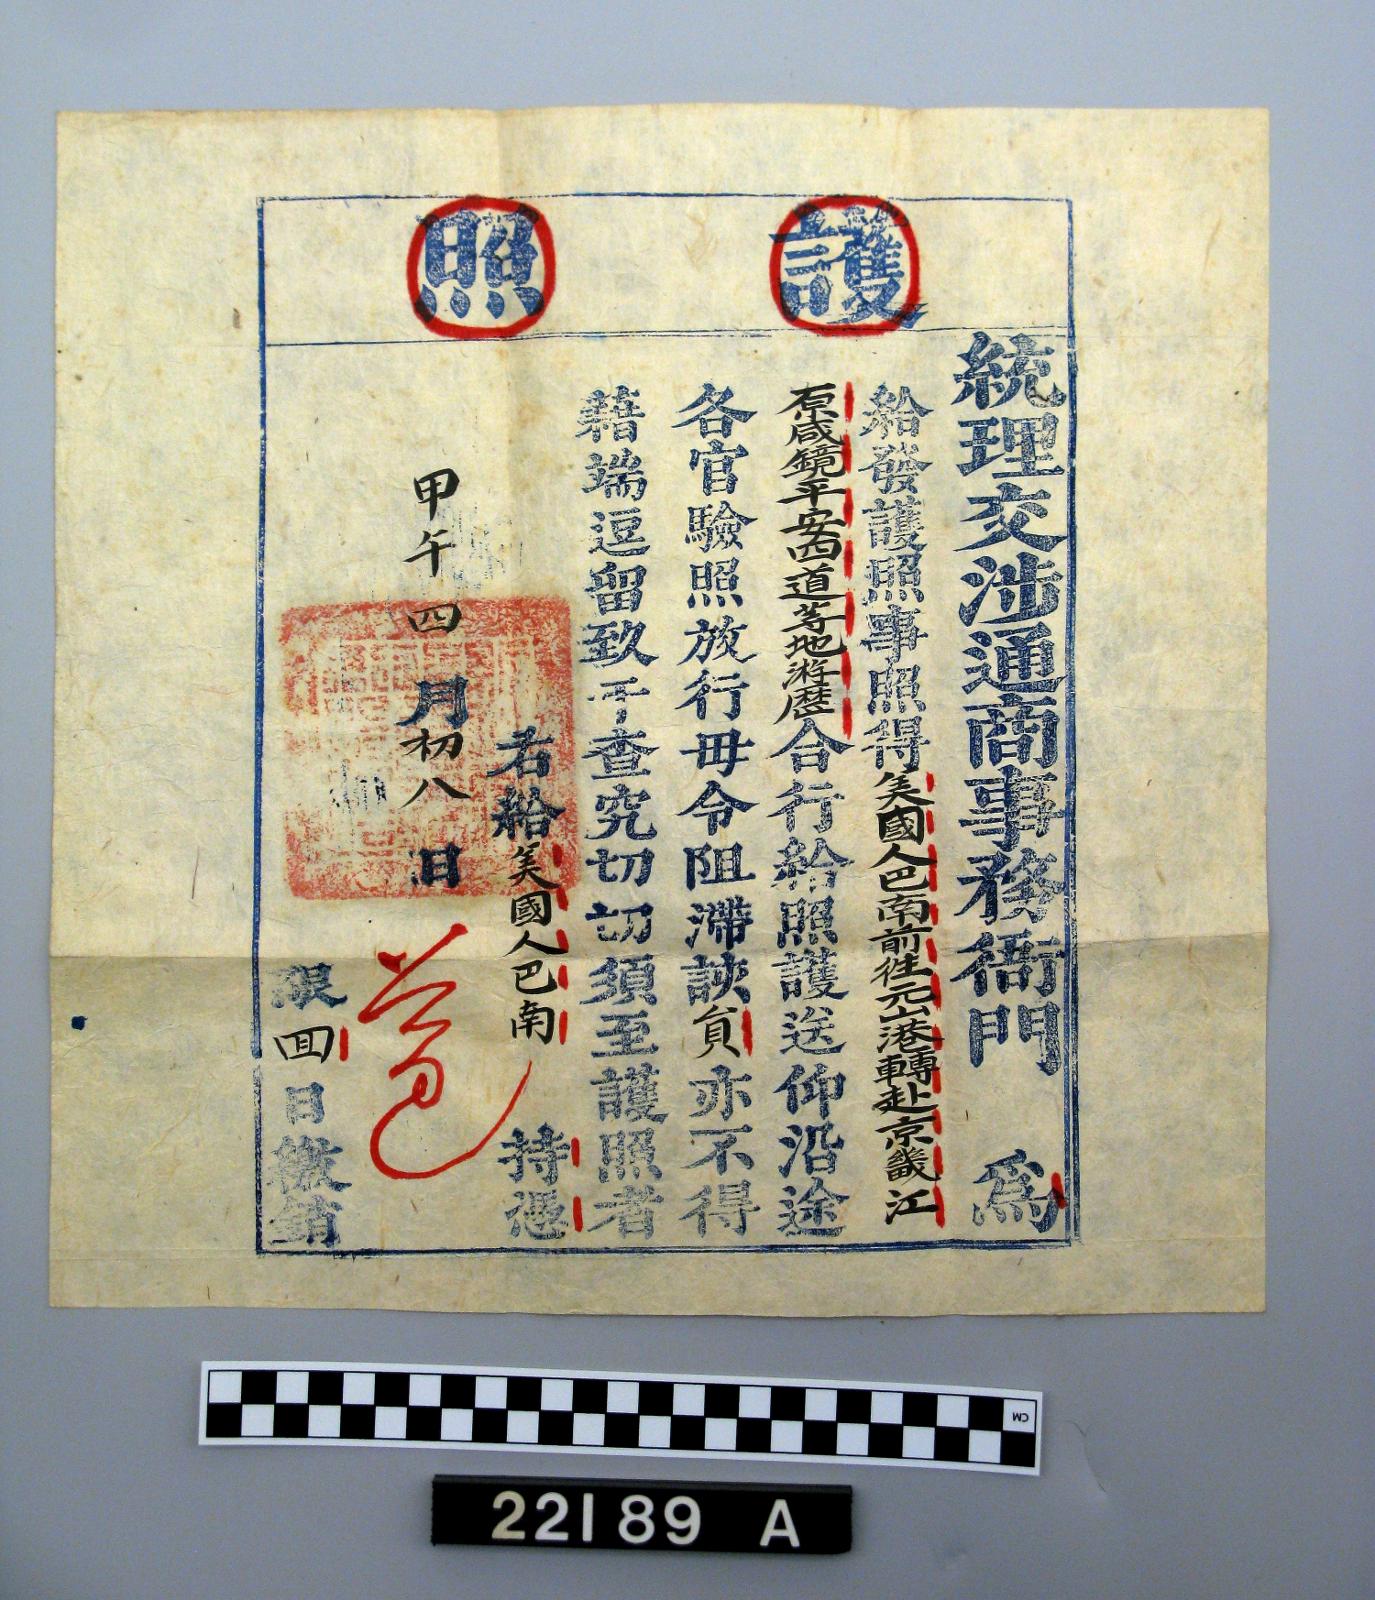 護照
統理交涉通商事務衙門 爲
給發護照事照得美國人巴南前往元山港轉赴京畿江
原咸鏡平安四道等地游歷合行給照護送仰沿途
各官驗照放行毋令阻滯該員亦不得
藉端逗留致干查究切切須至護照者
右給美國人巴南 持憑
甲午四月初八日
限回日繳銷
CM
22189 A